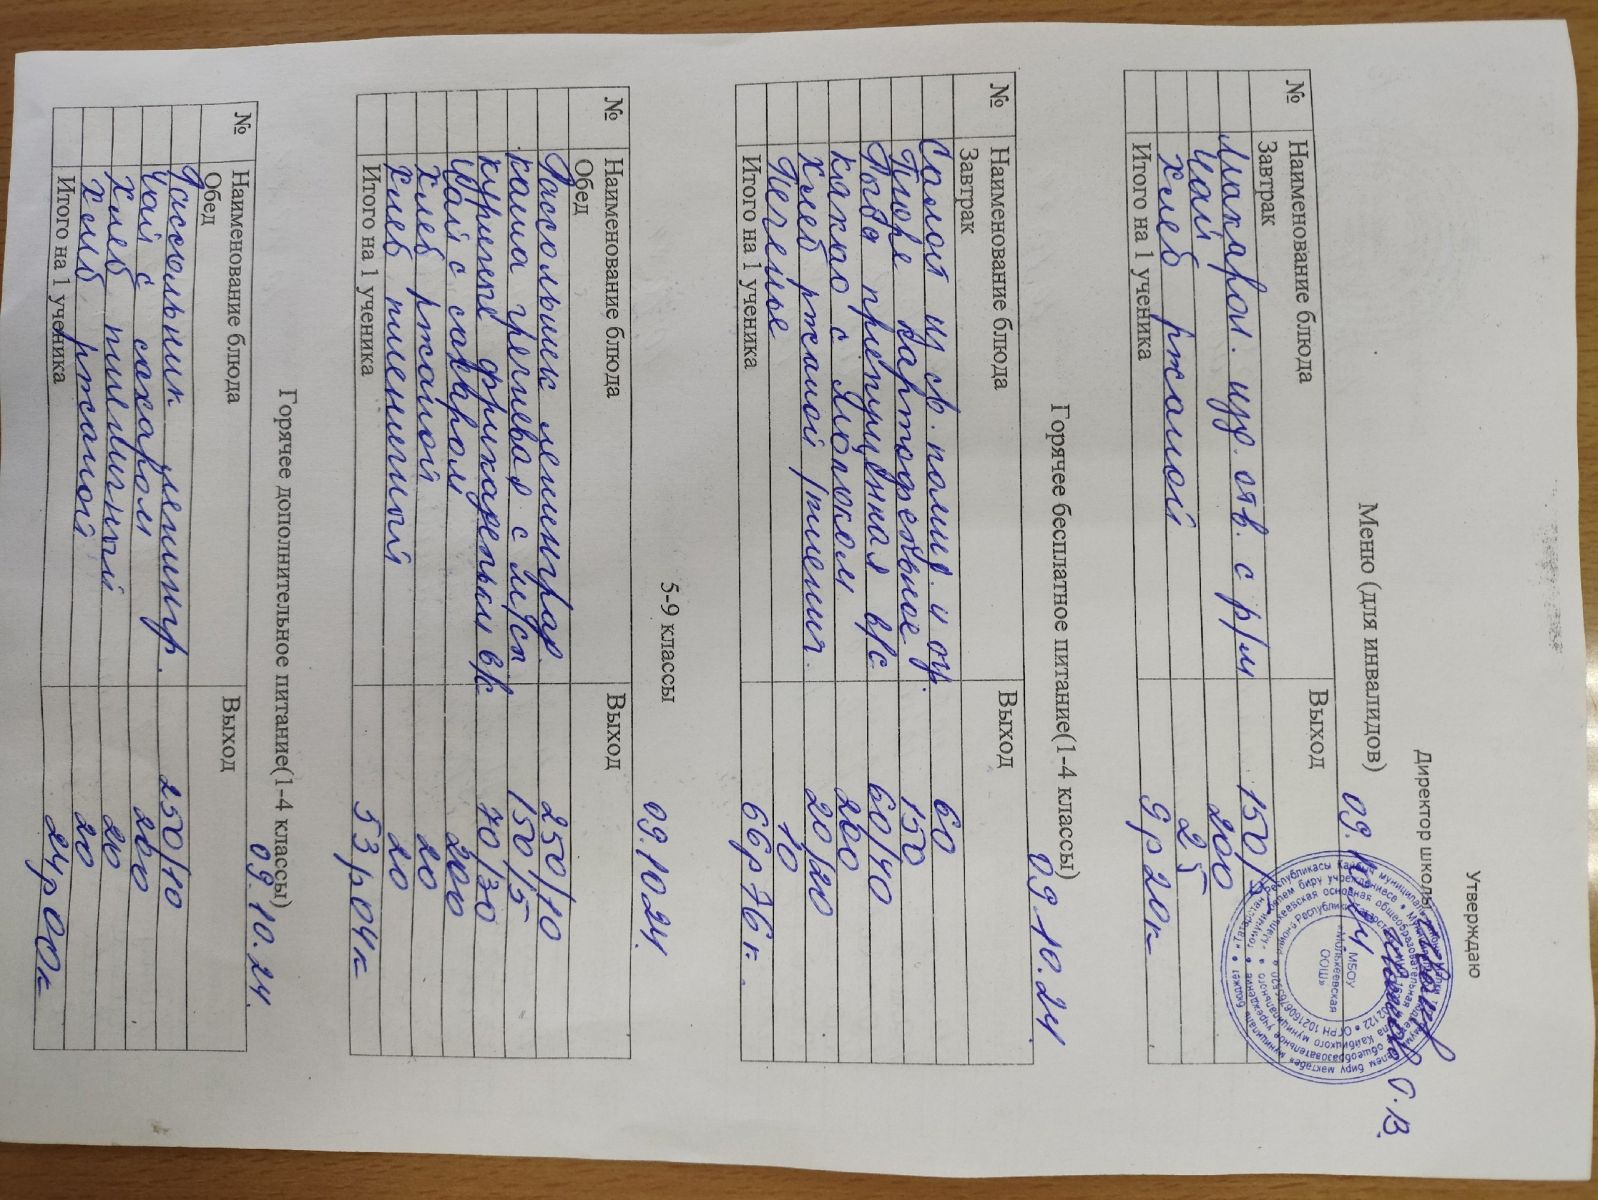 Утверждаю
Директор школы
Меню (для инвалидов)
№ Наименование блюда Выход
Завтрак
Макарон. изд. отв. с р/м 150/5
Чай 200
хлеб ржаной 25
Итого на 1 ученика 9р20к
МБОУ
«Малькеевская
ООШ»
Горячее бесплатное питание(1-4 классы)
09.10.24
№ Наименование блюда Выход
Завтрак
Салат из св. помид. и ог. 60
Пюре картофельное 150
Рыба припущенная в/с 60/40
какао с молоком 200
хлеб ржаной/пшенич. 20/20
Печенье 10
Итого на 1 ученика 66р76к.
5-9 классы
09.10.24.
№ Наименование блюда Выход
Обед
Рассольник ленинград. 250/10
каша гречневая с м/сл 150/5
куриные фрикадельки в/с 70/30
Чай с сахаром 200
хлеб ржаной 20
хлеб пшеничный 20
Итого на 1 ученика 53р04к
Горячее дополнительное питание(1-4 классы)
09.10.24.
№ Наименование блюда Выход
Обед
Рассольник ленингр. 250/10
Чай с сахаром 200
хлеб пшеничный 20
хлеб ржаной 20
Итого на 1 ученика 24р00к